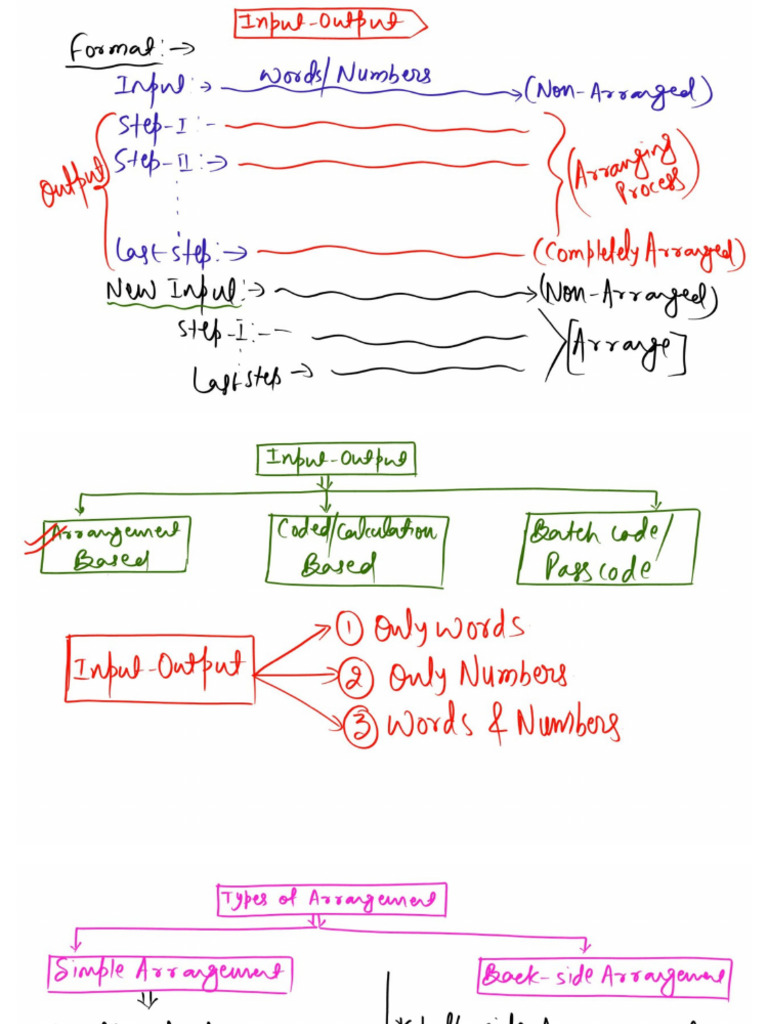 Input-Output
Format:→
Input:→ Words/Numbers → (Non-Arranged)
Step-I:-
Step-II:→
Output
(Arranging
Process)
Last step:→ (Completely Arranged)
New Input:→ (Non-Arranged)
Step-I:--
[Arrange]
Last step →
Input-Output
Arrangement
Based
Coded/Calculation
Based
Batch code/
Pass code
Input-Output
① Only Words
② Only Numbers
③ Words & Numbers
Types of Arrangement
Simple Arrangement
Back-side Arrangement